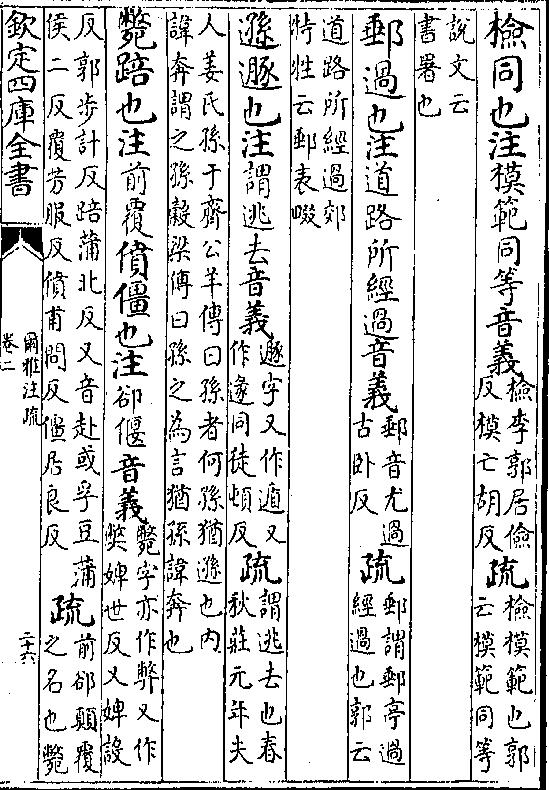 檢同也注模範同等音義檢李郭居儉反模亡胡反疏檢模範也郭云模範同等
說文云書署也
郵過也注道路所經過音義郵音尤過古卧反疏郵謂郵亭過經過也郭云
道路所經過郊特牲云郵表畷
遜遯也注謂逃去音義遯字又作遁又作遂同徒頓反疏謂逃去也春秋莊元年夫
人姜氏孫于齊公羊傳曰孫者何孫猶遜也内諱奔謂之孫穀梁傳曰孫之為言猶孫諱奔也
斃踣也注前覆僨僵也注卻偃音義斃字亦作弊又作獘婢世反又婢設
反郭步計反踣蒲北反又音赴或孚豆蒲侯二反覆芳服反僨甫問反僵居良反疏前卻顛覆之名也斃
欽定四庫全書
爾雅注疏
卷二
二十六